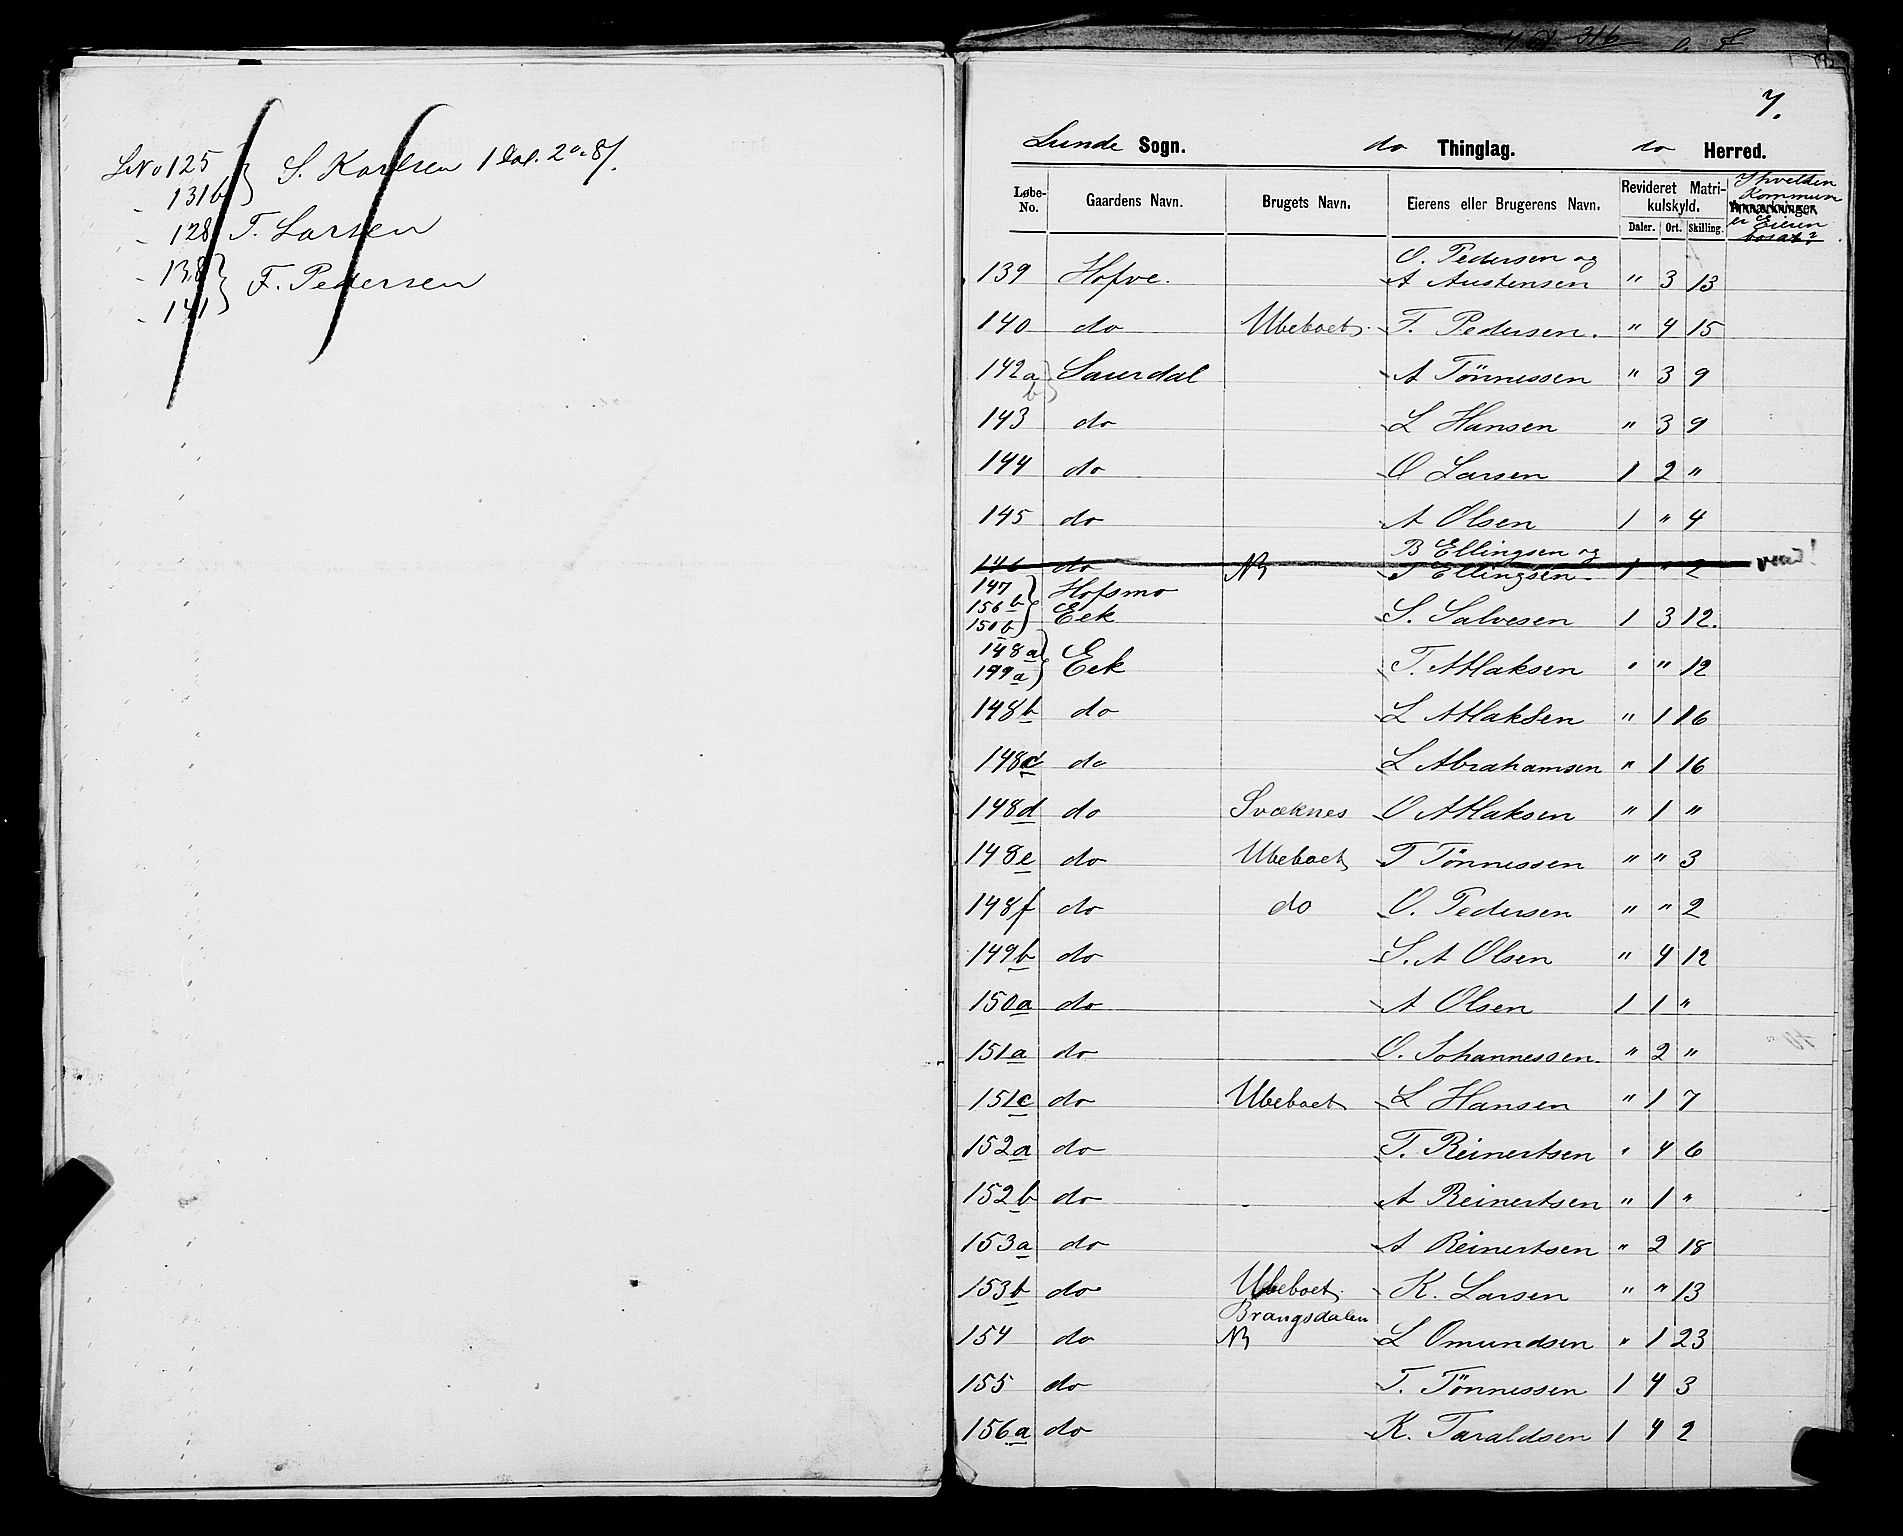 LNo 125 } S. Karlsen 1 Dal. 2 o. 8 s.
" 131b
" 128 T. Larsen
" 138 } F. Pedersen
" 141
7.
Lunde Sogn. do Thinglag. do Herred.
Løbe-No. Gaardens Navn. Brugets Navn. Eierens eller Brugerens Navn. Revideret Matrikulskyld. Daler. Ort. Skilling. I hvilken Kommun er Eieren bosat?
139 Hofve. O. Pedersen og A Austensen " 3 13
140 do Ubeboet. F. Pedersen. " 4 15
142a b } Saurdal A Tönnessen " 3 9
143 do L Hansen " 3 9
144 do O Larsen 1 2 "
145 do A Olsen 1 " 4
146 do NB B Ellingsen og T Ellingsen 1 " 2
147 156b 150b } Hofsmo Eek S. Salvesen 1 3 12.
148a 149a } Eek T. Atlaksen " " 12
148b do L Atlaksen " 1 16
148c do L Abrahamsen " 1 16
148d do Svæknes O Atlaksen " 1 "
148e do Ubeboet T Tönnessen " " 3
148f do do O. Pedersen " " 2
149b do S. A Olsen " 4 12
150a do A Olsen 1 1 "
151a do O. Johannessen " 2 "
151c do Ubeboet L Hansen " 1 7
152a do T. Reinertsen " 4 6
152b do A Reinertsen " 1 "
153a do A Reinertsen " 2 18
153b do Ubeboet. K. Larsen " " 13
154 do Brangsdalen NB L Omundsen " 1 23
155 do T. Tönnessen 1 4 3
156a do K. Taraldsen 1 4 2